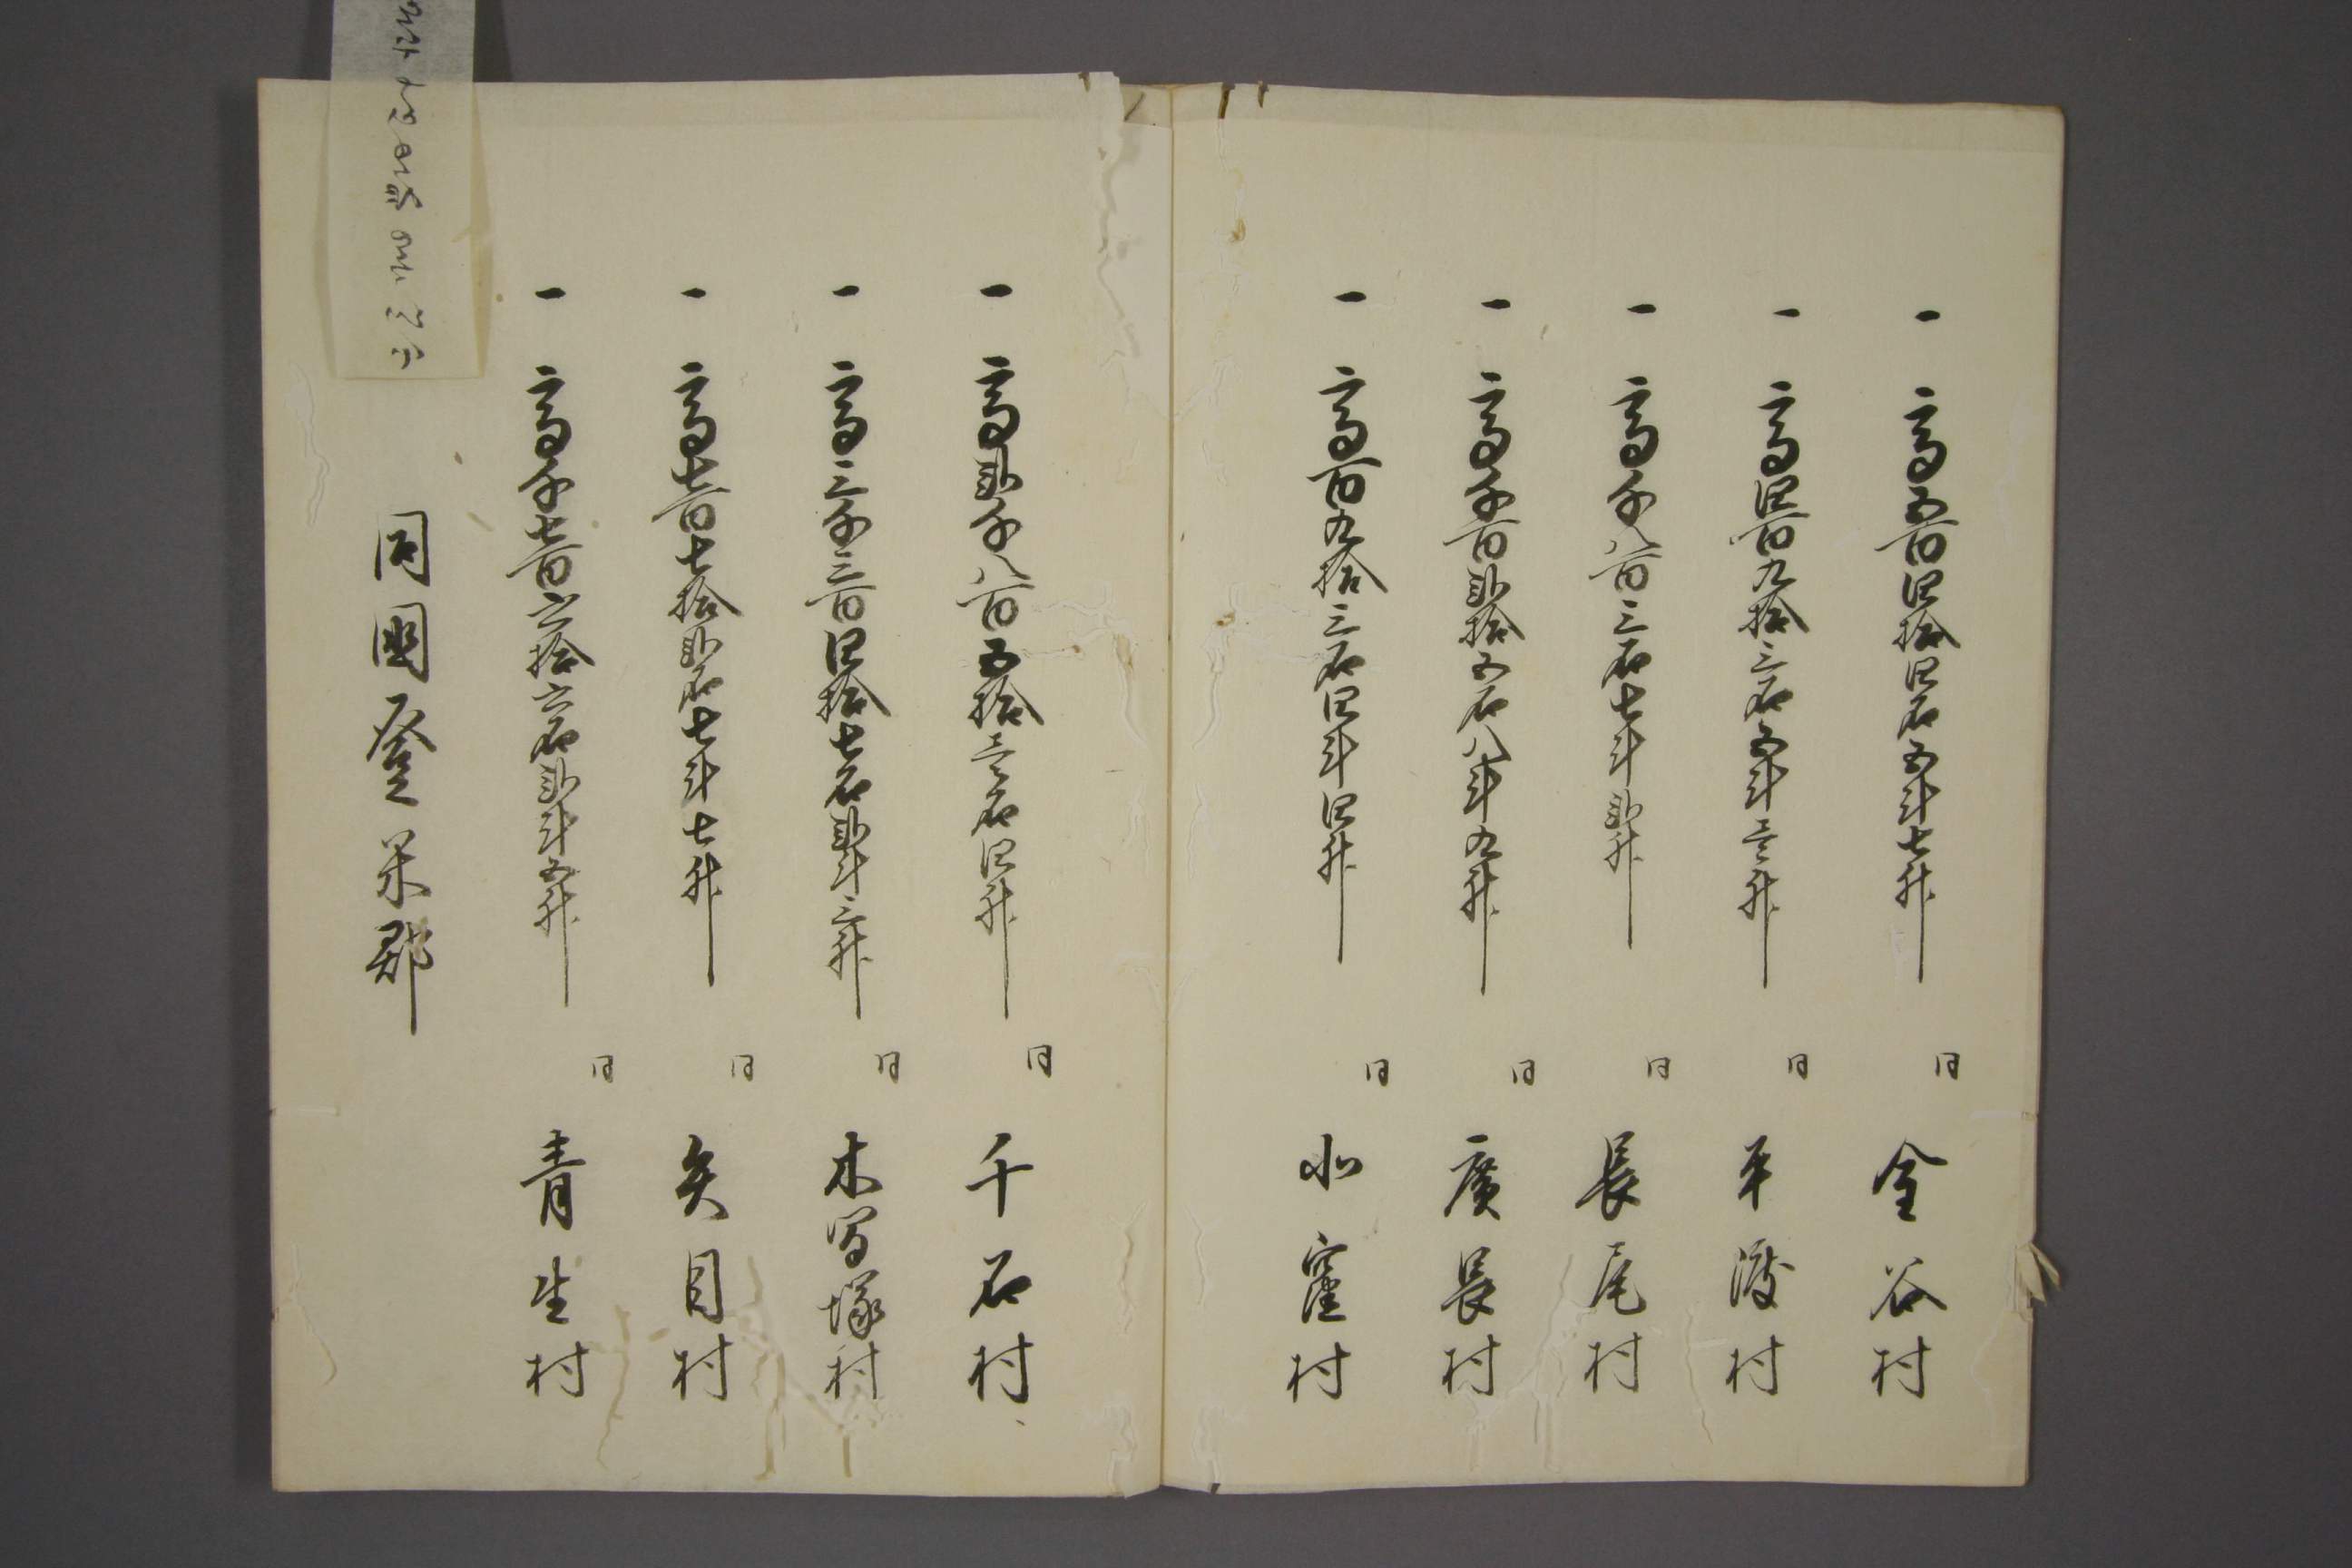 一 高五百四拾四石五斗七升 同 金谷村
一 高四百九拾三石五斗壱升 同 平渡村
一 高千八百三石七斗弐升 同 長尾村
一 高千百弐拾五石八斗九升 同 廣長村
一 高百九拾三石四斗四升 同 小窪村
一 高弐千八百五拾壱石四升 同 千石村
一 高三千三百四拾七石弐斗三升 同 木間塚村
一 高七百七拾弐石七斗七升 同 矢目村
一 高千七百六拾六石弐斗五升 同 青生村
同國登米郡